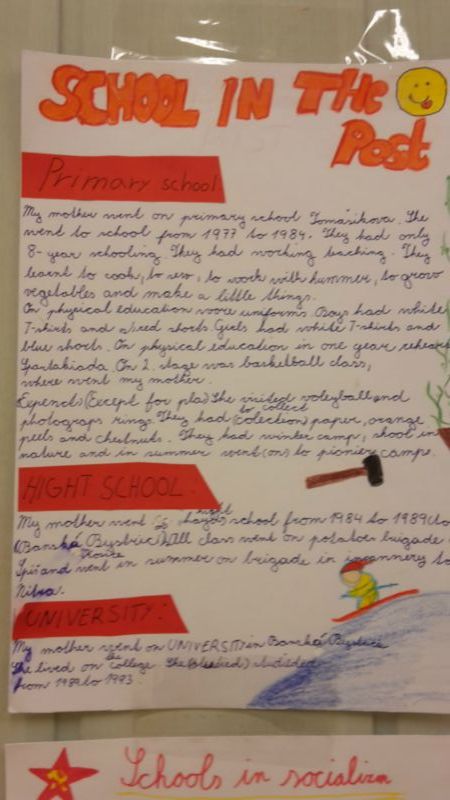 SCHOOL IN THE
Post
Primary school
My mother went on primary school Tomášikova. She
went to school from 1977 to 1984. They had only
8-year schooling. They had working teaching. They
learnt to cook, to sew, to work with hummer, to grow
vegetables and make a little things.
On physical education wore uniforms. Boys had white
T-shirts and red shorts. Girls had white T-shirts and
blue shorts. On physical education in one year rehears
Spartakiada. On 2. stage was basketball class,
where went my mother.
(Except for pla) She visited voleyball and
to collect
photograps rings. They had (colection) paper, orange
peels and chestnuts. They had winter camp, shool in
nature and in summer went (on) to pionier camps.
HIGHT SCHOOL
hight
My mother went school from 1984 to 1989 (to
(Banská Bystrica) All class went on potatoes brigade
Spiš and went in summer on brigade in to
Nitra.
UNIVERSITY:
My mother went on UNIVERSITY in Banská Bystrica
the
She lived on college. She studided
from 1989 to 1993.
Schools in socializm